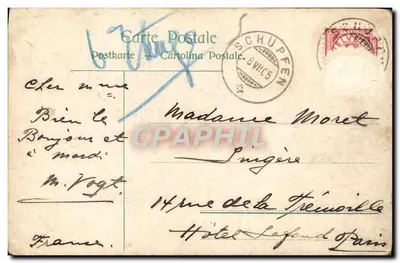 Carte Postale
Postkarte Cartolina Postale.
SCHÜPFEN
6 VII 05
CPAPHIL
Cher mme
Bien le
Bonjour et
à mardi
M. Vogt.
France.
Madame Moret
Lingère
14 rue de la Trémoille
Hôtel Lafond Paris